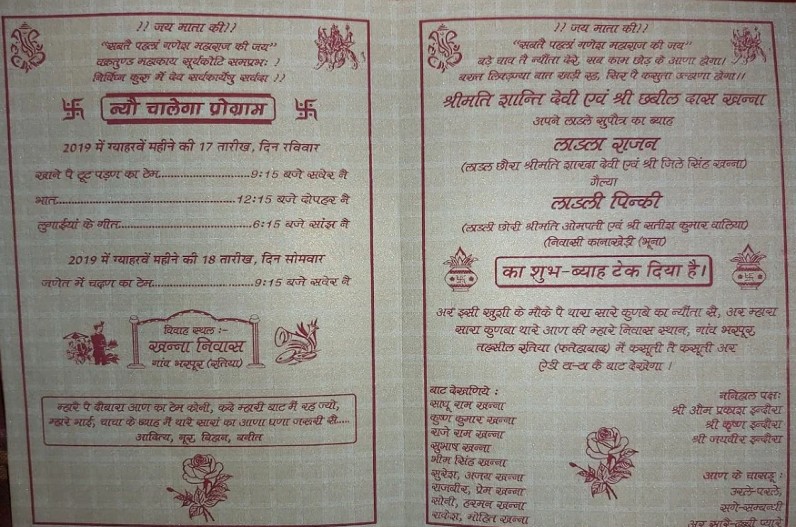 ?? जय माता की??
“सबतै पहलां गणेश महाराज की जय”
वक्रतुण्ड महाकाय सूर्यकोटि समप्रभः ?
निर्विघ्न कुरु में देव सर्वकार्येषु सर्वदा ??
न्यौ चालेगा प्रोग्राम
2019 में ग्याहरवें महीने की 17 तारीख, दिन रविवार
खाने पै टूट पड़ण का टेम.....................9:15 बजे सवेर नै
भात........................................12:15 बजे दोपहर नै
लुगाईयां के गीत..............................6:15 बजे सांझ नै
2019 में ग्याहरवें महीने की 18 तारीख, दिन सोमवार
जणेत में चढ़ण का टेम........................9:15 बजे सवेर नै
विवाह स्थल :-
खन्ना निवास
गांव भरपूर (रतिया)
म्हारे पै दोबारा आण का टेम कोनी, कदे म्हारी बाट मैं रह ज्यो,
म्हारे भाई, चाचा के ब्याह मैं थारे सारां का आणा घणा जरूरी सै.....
आदित्य, नूर, विहान, वनीत
?? जय माता की??
“सबतै पहलां गणेश महाराज की जय”
बड़े चाव तै न्यौंता देरे, सब काम छोड़ के आणा होगा।
बखत लिकड़ज्या बात खड़ी रह, सिर पै कसुता उल्हाणा होगा।।
श्रीमति शान्ति देवी एवं श्री छबील दास खन्ना
अपने लाडले सुपौत्र का ब्याह
लाडला राजन
(लाडला छौरा श्रीमति शारदा देवी एवं श्री जिले सिंह खन्ना)
गैल्या
लाडली पिन्की
(लाडली छोरी श्रीमति ओमपती एवं श्री सतीश कुमार वालिया)
(निवासी कानाखेड़ी (भूना)
का शुभ-ब्याह टेक दिया है।
अर इसी खुशी के मौके पै थारा सारे कुणबे का न्यौंता सै, अर म्हारा
सारा कुणबा थारे आण की म्हारे निवास स्थान, गांव भरपूर,
तहसील रतिया (फतेहाबाद) मैं कसूती तै कसूती अर
ऐडी ठा-ठा कै बाट देखेगा ।
बाट देखणिये :
साधू राम खन्ना
कृष्ण कुमार खन्ना
राजे राम खन्ना
सुभाष खन्ना
भीम सिंह खन्ना
सुरेश, अजय खन्ना
राजबीर, प्रेम खन्ना
सोनी, हरमन खन्ना
राकेश, मोहित खन्ना
ननिहाल पक्षः
श्री ओम प्रकाश इन्दौरा
श्री कृष्ण इन्दौरा
श्री जयवीर इन्दौरा
आण के चासडू :
उरले-परले,
सगे-सम्बन्धी
अर सारे-ढब्बी प्यारे